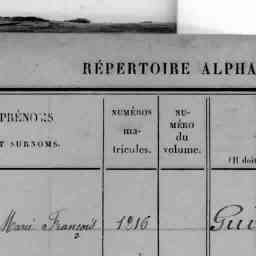 RÉPERTOIRE ALPHA
PRÉNOMS
ET SURNOMS.
NUMÉROS
ma-
tricules.
NU-
MÉRO
du
volume.
(Il doit
Marie François 1216 Gui